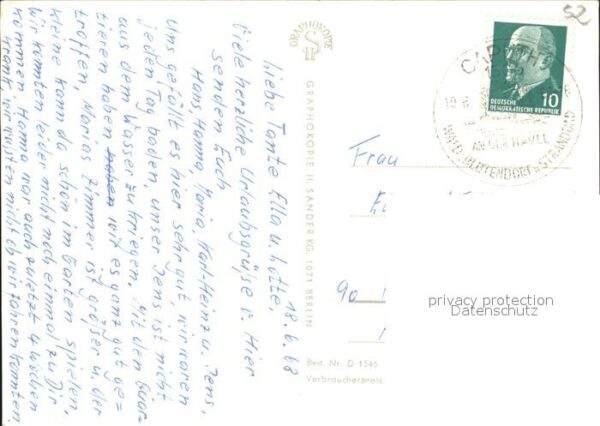 18.6.68
Liebe Tante Ella u. Lotte,
Viele herzliche Urlaubsgrüße v. Hier
senden Euch
Hans, Hanna, Maria, Karl-Heinz u. Jens,
Uns gefällt es hier sehr gut wir waren
jeden Tag baden, unser Jens ist nicht
aus dem Wasser zu kriegen. Mit den Quar=
tieren haben haben wir es ganz gut ge=
troffen, Marias Zimmer ist größer u. der
kleine kann da schön im Garten spielen.
Wir konnten leider nicht noch einmal zu Dir
kommen Hanna war auch zuletzt 4 Wochen
krank, wir mußten
wir fahren konnten.
GRAPHOKOPIE
GRAPHOKOPIE H. SANDER KG, 1071 BERLIN
Best.-Nr. D 1546
Verbraucherpreis
52
CAPUTH
AN DER HAVEL
DEUTSCHE
DEMOKRATISCHE REPUBLIK
10
Frau
privacy protection
Datenschutz